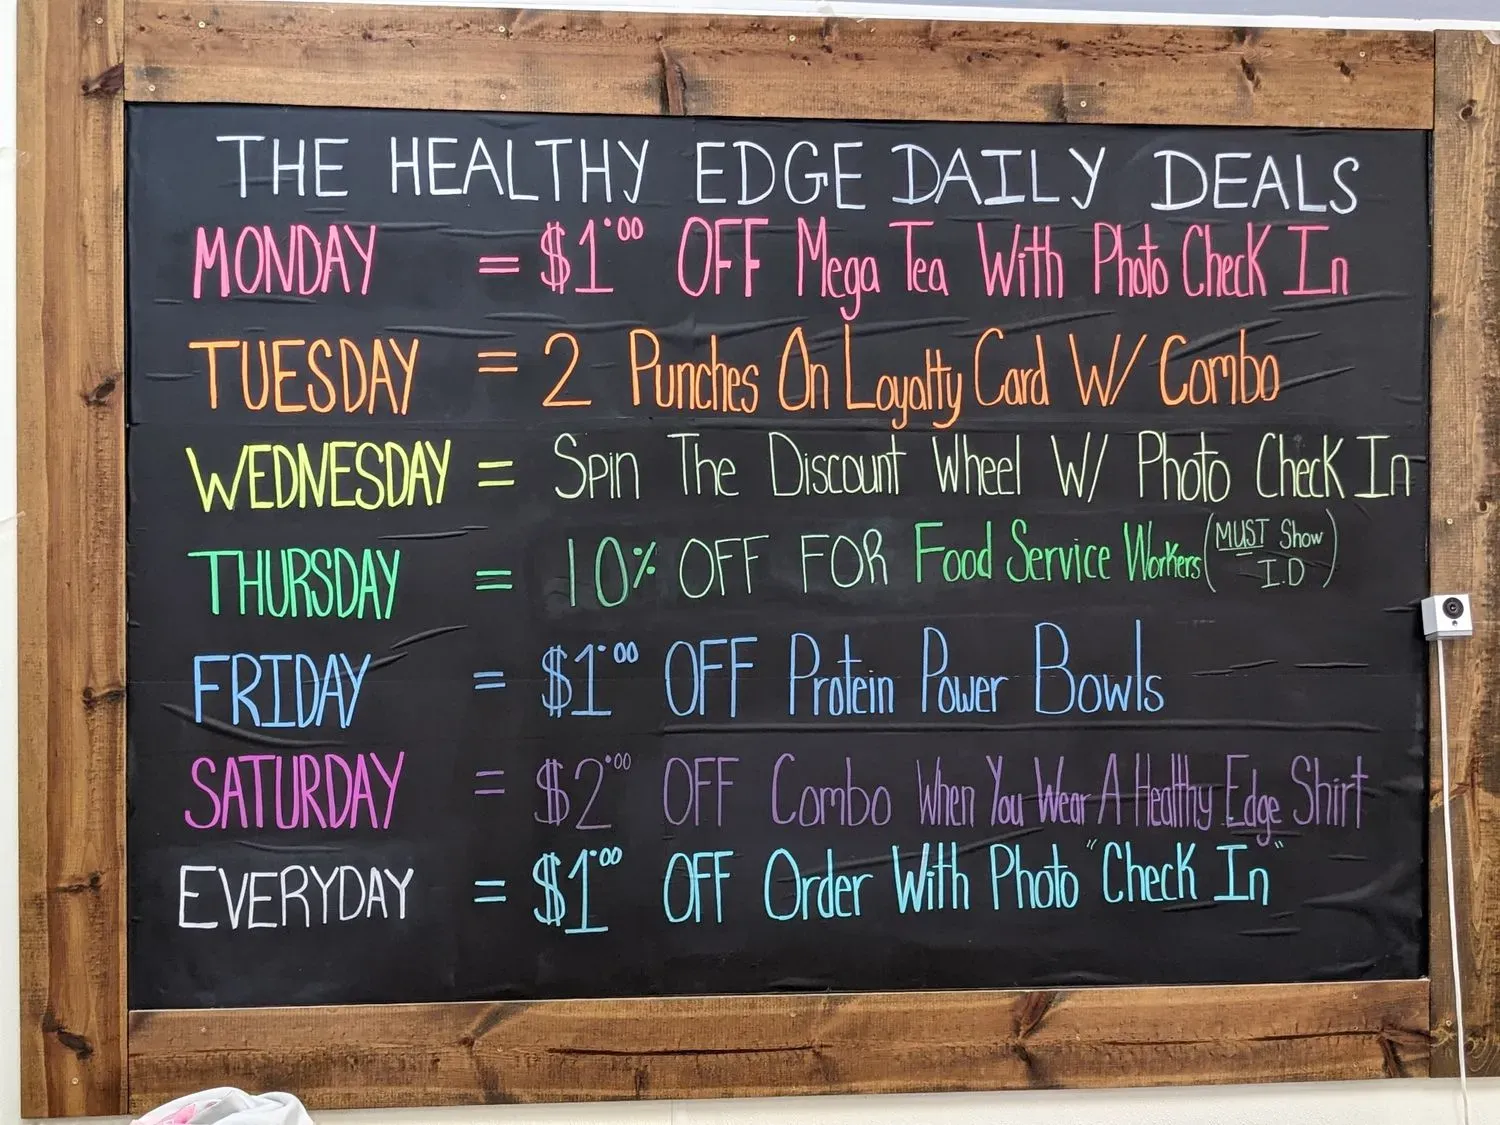 THE HEALTHY EDGE DAILY DEALS
MONDAY = $1.00 OFF Mega Tea With Photo Check In
TUESDAY = 2 Punches On Loyalty Card W/ Combo
WEDNESDAY = Spin The Discount Wheel W/ Photo Check In
THURSDAY = 10% OFF FOR Food Service Workers (MUST Show I.D)
FRIDAY = $1.00 OFF Protein Power Bowls
SATURDAY = $2.00 OFF Combo When You Wear A Healthy Edge Shirt
EVERYDAY = $1.00 OFF Order With Photo "Check In"